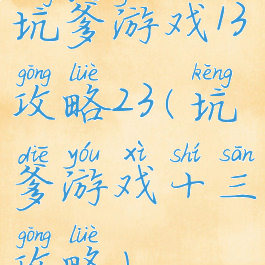 坑爹游戏13
gōng lüè kēng
攻略23(坑
diē yóu xì shí sān
爹游戏十三
gōng lüè
攻略)